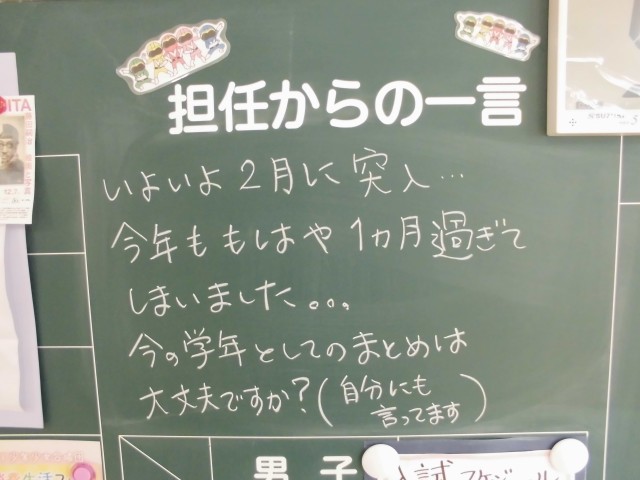 担任からの一言
いよいよ2月に突入…
今年ももはや1カ月過ぎて
しまいました。。。
今の学年としてのまとめは
大丈夫ですか?(自分にも
言ってます)
男子
入試スケジュール